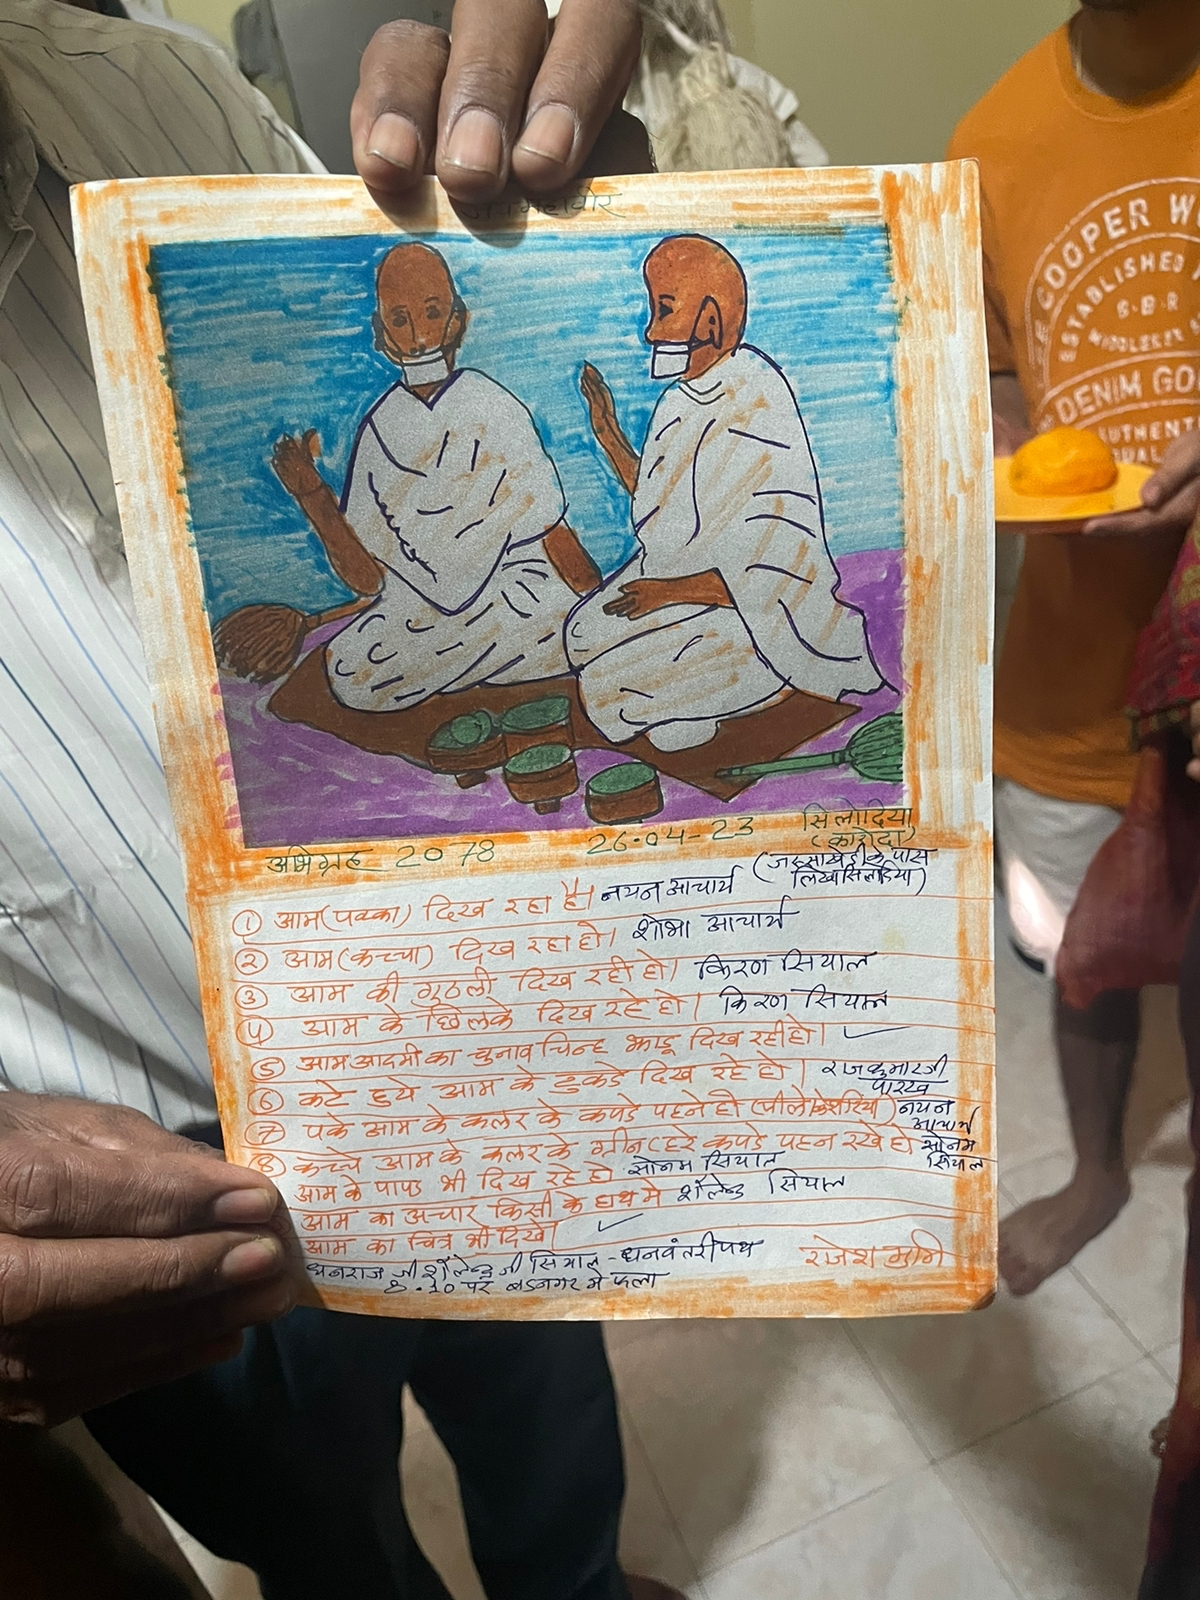 जय महावीर
COOPER W
ESTABLISHED
S·B·R
MIDDLESEX
DENIM GO
AUTHENT
अभिग्रह 2078 26-04-23 सिलोदिया
(कारोदा)
के पास
लिखा सिलोदिया)
① आम (पक्का) दिख रहा है। नयन आचार्य
② आम (कच्चा) दिख रहा हो। शोभा आचार्य
③ आम की गुठली दिख रही हो। किरण सियाल
④ आम के छिलके दिख रहे हो। किरण सियाल
⑤ आम आदमी का चुनाव चिन्ह झाडू दिख रही हो। ✓
⑥ कटे हुये आम के टुकडे दिख रहे हो। राजकुमारजी
पारख
⑦ पके आम के कलर के कपडे पहने हो (पीले केशरिया) नयन
आचार्य
⑧ कच्चे आम के कलर के ग्रीन (हरे कपडे पहन रखे हो सोनम
सियाल
आम के पापड भी दिख रहे हो सोनम सियाल
आम का अचार किसी के हाथ मे शैलेन्द्र सियाल
आम का चित्र भी दिखे। ✓
धनराज जी शैलेन्द्र जी सियाल - धनवंतरी पथ राजेश मुनि
8.20 पर बडनगर मे फला